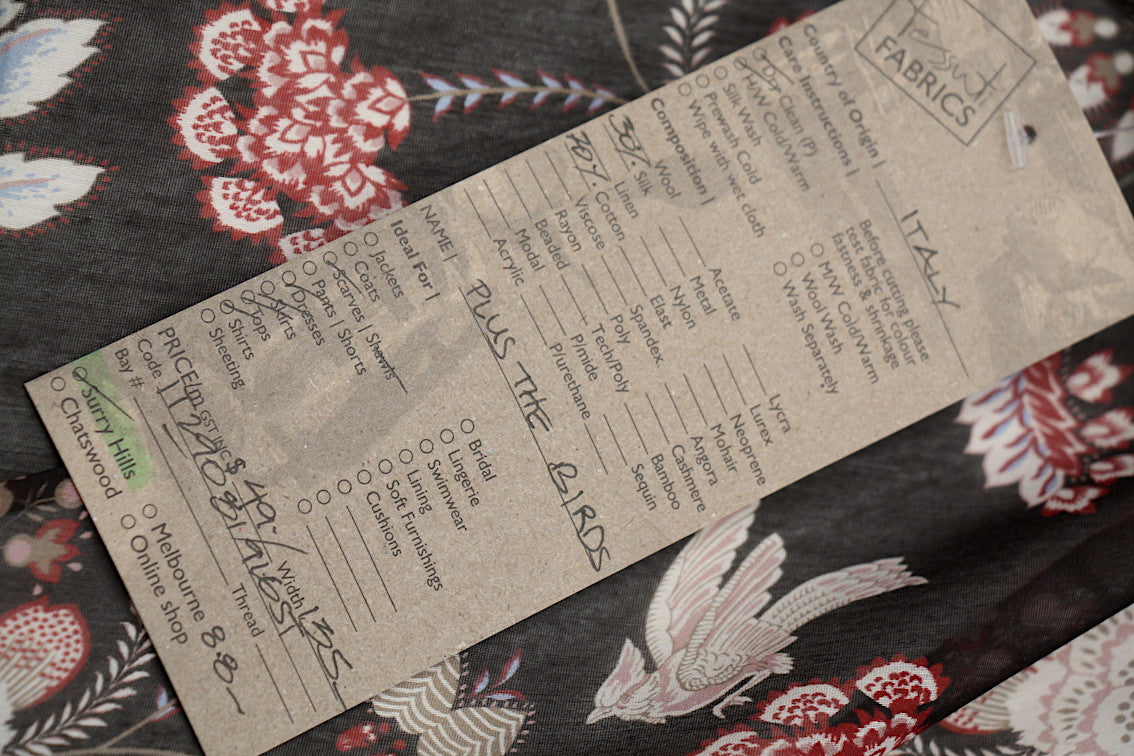 Tessuti
FABRICS
Country of Origin | ITALY
Care Instructions |
Dry Clean (P)
H/W Cold/Warm
Silk Wash
Prewash Cold
Wipe with wet cloth
Before cutting please
test fabric for colour
fastness & shrinkage
M/W Cold/Warm
Wool Wash
Wash Separately
Composition |
Wool
30% Silk
Linen
70% Cotton
Viscose
Rayon
Beaded
Modal
Acrylic
Acetate
Metal
Nylon
Elast
Spandex
Poly
Tech/Poly
P/mide
P/urethane
Lycra
Lurex
Neoprene
Mohair
Angora
Cashmere
Bamboo
Sequin
NAME | PLUS THE BIRDS
Ideal For |
Jackets
Coats
Scarves | Shawls
Pants | Shorts
Dresses
Skirts
Tops
Shirts
Sheeting
Bridal
Lingerie
Swimwear
Lining
Soft Furnishings
Cushions
PRICE/m GST INC $ 49.- Width 135
Code
Bay # Thread
Surry Hills
Chatswood
Melbourne 8.8-
Online shop